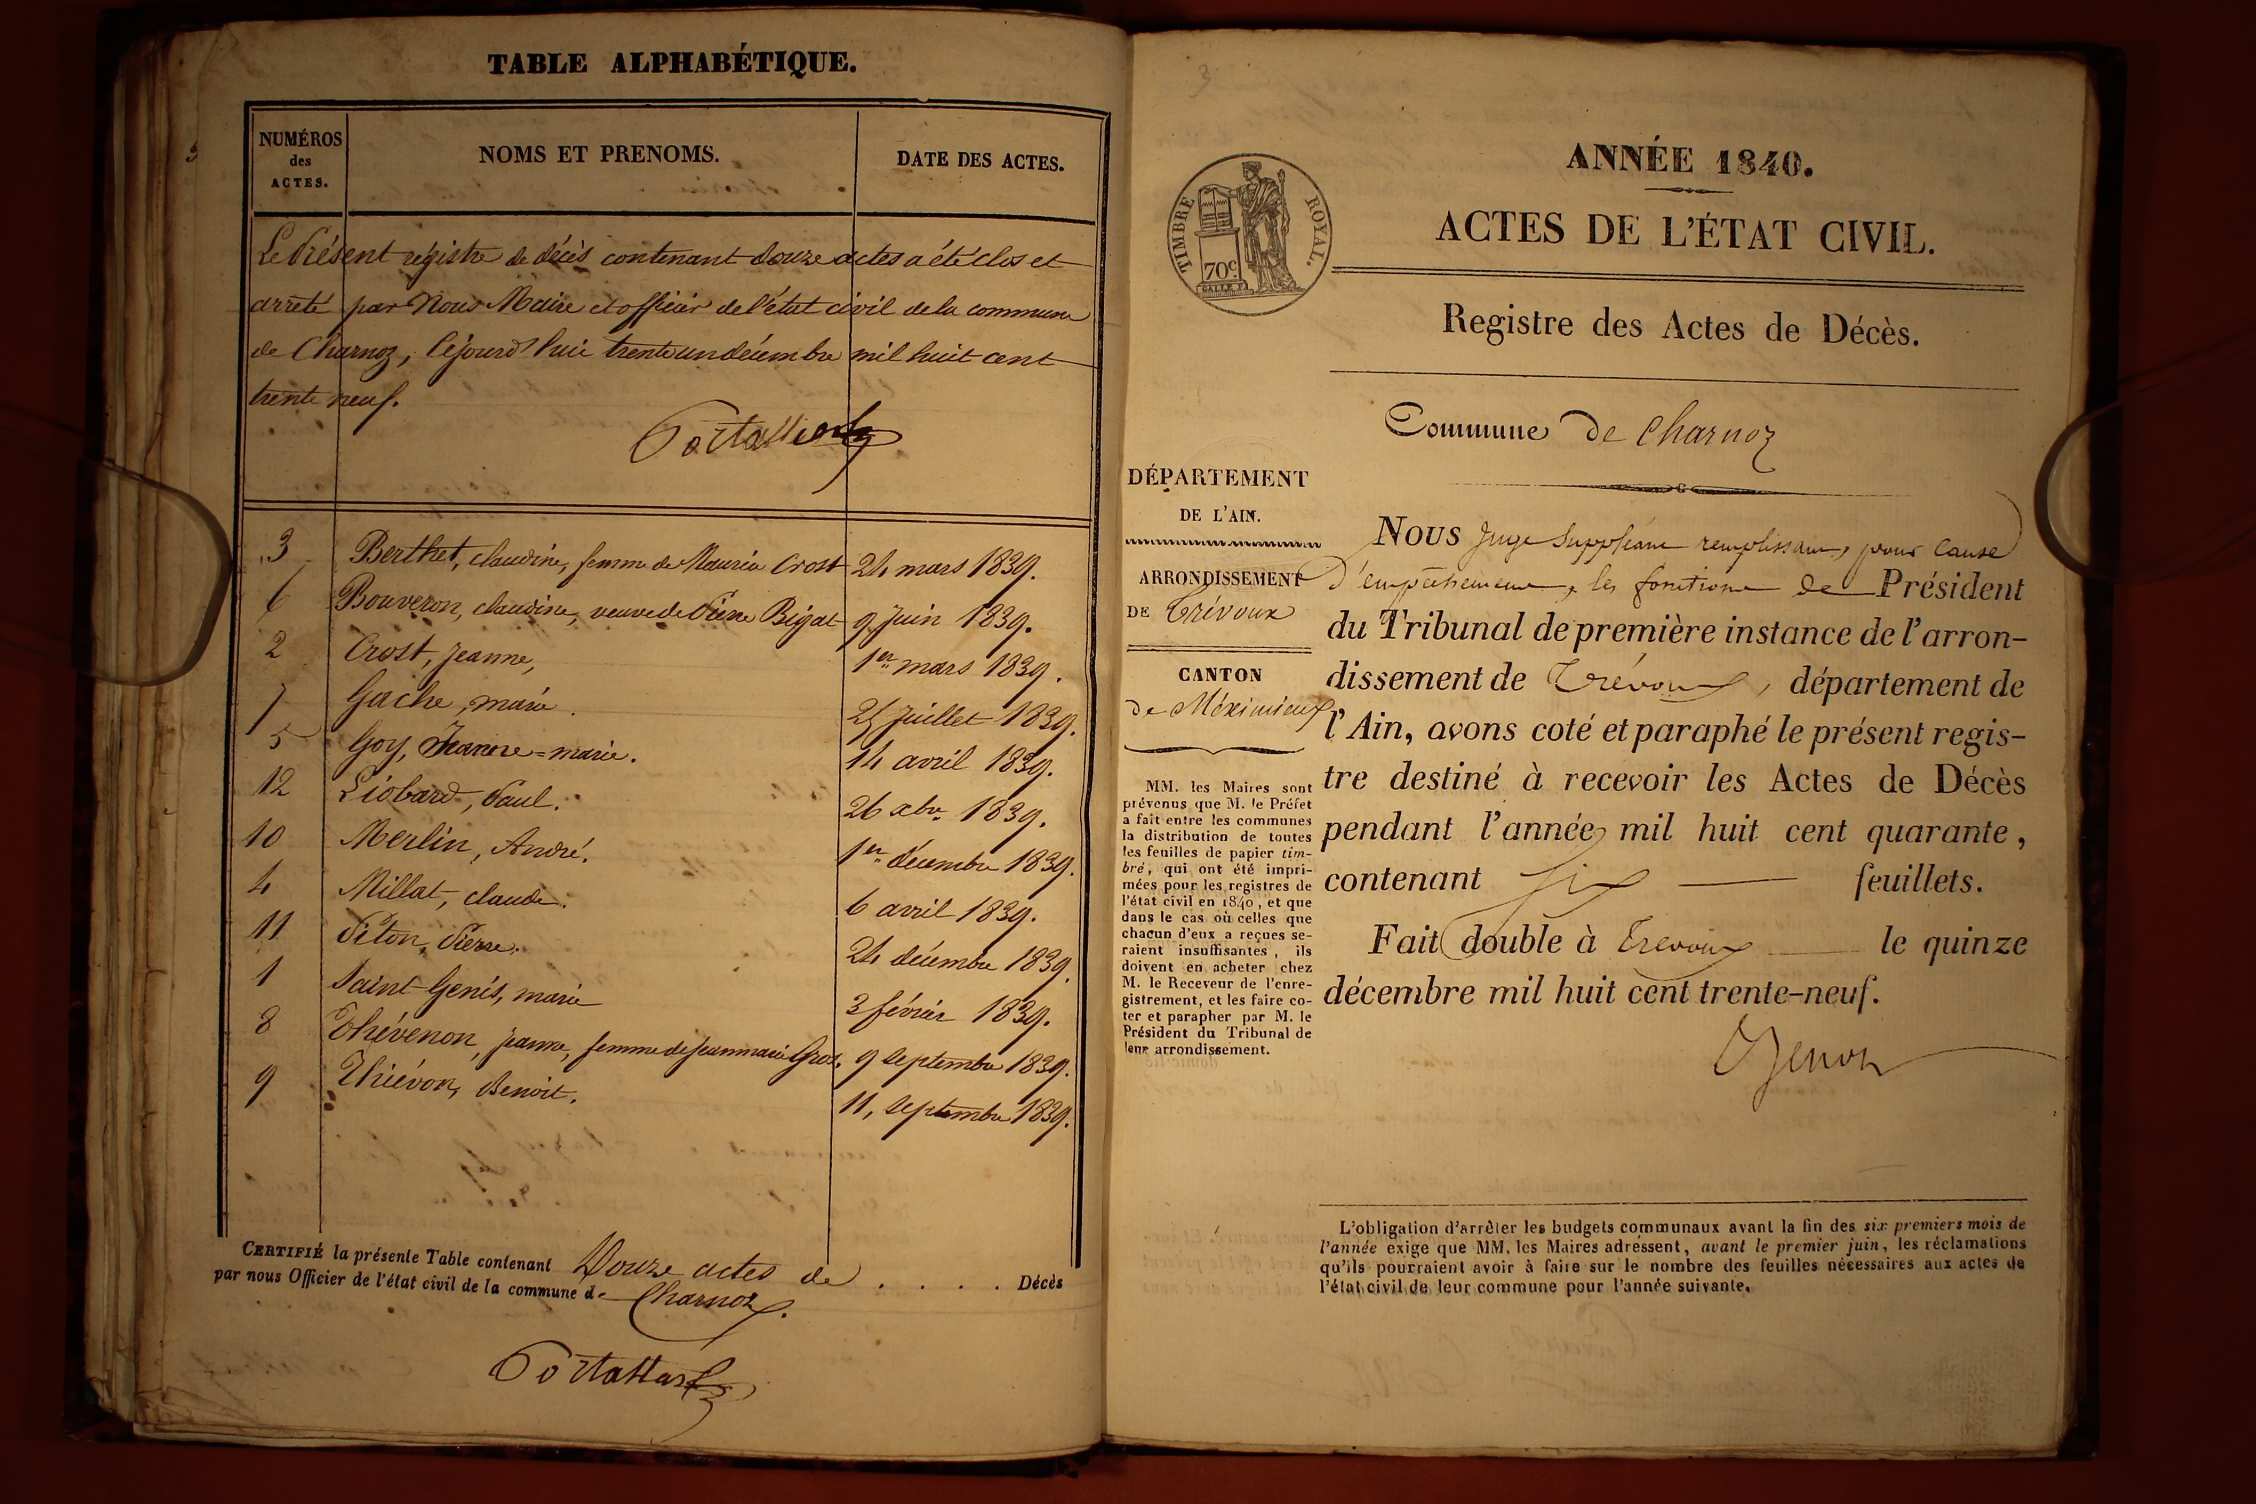 TABLE ALPHABÉTIQUE.
NUMÉROS
des
ACTES.
NOMS ET PRENOMS.
DATE DES ACTES.
Le Présent régistre de décès contenant douze actes a été clos et
arrêté par Nous Maire et officier de l'état civil de la commune
de Charnoz, Cejourd'huie trente un décembre mil huit cent
trente neuf.
3 Berthet, claudine, femme de Maurice Crost 24 mars 1839.
6 Bouveron, claudine, veuve de Pierre Bigat 9 Juin 1839.
2 Crost, Jeanne, 1er mars 1839.
7 Gache, marie. 25 Juillet 1839.
5 Goy, Jeanne=marie. 14 avril 1839.
12 Liobard, Paul. 26 xbre 1839.
10 Merlin, André. 1er décembre 1839.
4 Millat, claude. 6 avril 1839.
11 Piton, Pierre. 24 décembre 1839.
1 Saint-Genis, marie 3 février 1839.
8 Thévenon, jeanne, femme de Jeanmarie Gros. 9 septembre 1839.
9 Thiévon, Benoit. 11, septembre 1839.
CERTIFIÉ la présente Table contenant Douze actes de . . . . Décès
par nous Officier de l'état civil de la commune de Charnoz.
3
TIMBRE ROYAL.
70c.
ANNÉE 1840.
ACTES DE L'ÉTAT CIVIL.
Registre des Actes de Décès.
Commune de Charnoz
DÉPARTEMENT
DE L'AIN.
ARRONDISSEMENT
DE Trévoux
CANTON
de Méximieux
MM. les Maires sont
prévenus que M. le Préfet
a fait entre les communes
la distribution de toutes
les feuilles de papier tim-
bré, qui ont été impri-
mées pour les registres de
l'état civil en 1840, et que
dans le cas où celles que
chacun d'eux a reçues se-
raient insuffisantes, ils
doivent en acheter chez
M. le Receveur de l'enre-
gistrement, et les faire co-
ter et parapher par M. le
Président du Tribunal de
leur arrondissement.
NOUS Juge Suppléant remplissant, pour Cause
d'empêchement, les fonctions de Président
du Tribunal de première instance de l'arron-
dissement de Trévoux, département de
l'Ain, avons coté et paraphé le présent regis-
tre destiné à recevoir les Actes de Décès
pendant l'année mil huit cent quarante,
contenant six feuillets.
Fait double à Trevoux le quinze
décembre mil huit cent trente-neuf.
L'obligation d'arrêter les budgets communaux avant la fin des six premiers mois de
l'année exige que MM. les Maires adressent, avant le premier juin, les réclamations
qu'ils pourraient avoir à faire sur le nombre des feuilles nécessaires aux actes de
l'état civil de leur commune pour l'année suivante.